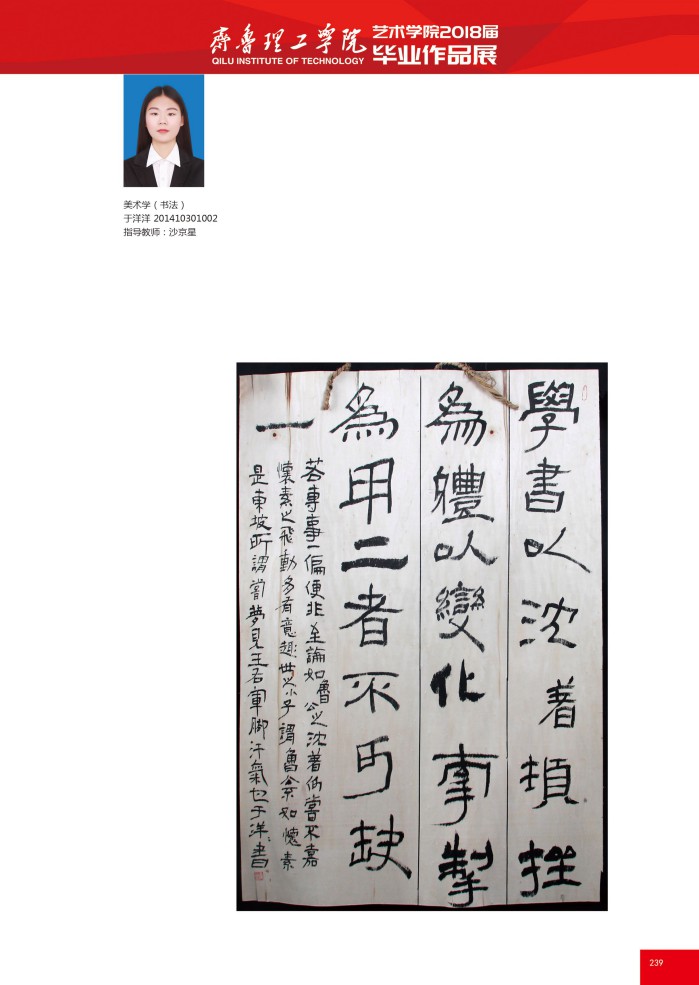 齊魯理工學院
QILU INSTITUTE OF TECHNOLOGY
艺术学院2018届
毕业作品展
美术学（书法）
于洋洋 201410301002
指导教师：沙京星
學書以沈着頓挫
為體以變化牽掣
為用二者不可缺
一
若專事一偏便非至論如魯公之沈着何嘗不嘉
懷素之飛動多有意趣世之小子謂魯公不如懷素
是東坡所謂嘗夢見王右軍脚汗氣也于洋洋書
239